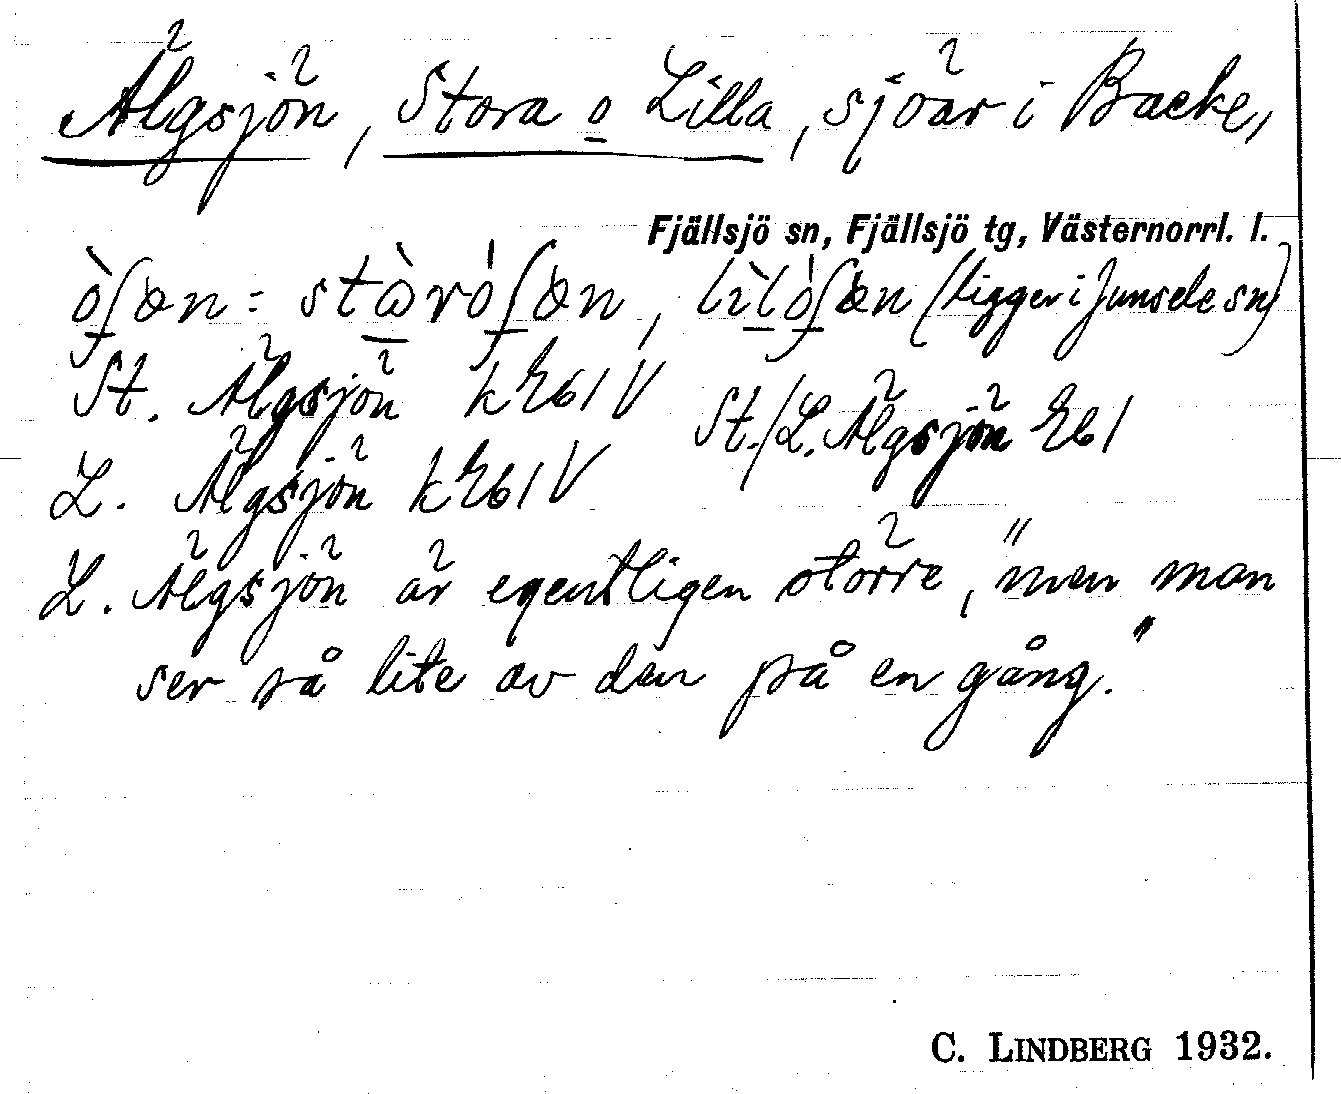 Älgsjön, Stora o Lilla, sjöar i Backe,
Fjällsjö sn, Fjällsjö tg, Västernorrl. l.
(ligger i Junsele sn)
St. Älgsjön k Eb1V St./L. Älgsjön Eb1
L. Älgsjön k Eb1V
L. Älgsjön är egentligen större, "men man
ser så lite av den på en gång."
C. LINDBERG 1932.